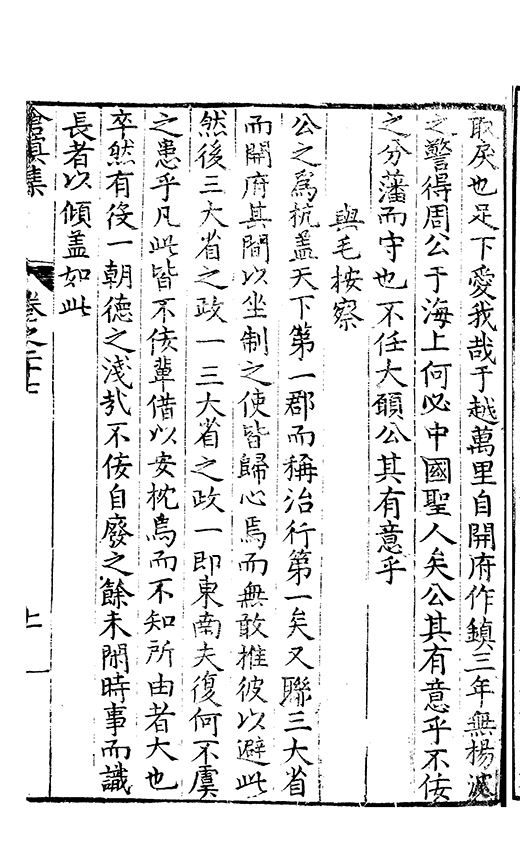 取戾也足下愛我哉于越萬里自開府作鎮三年無楊波
之警得周公于海上何必中國聖人矣公其有意乎不侫
之分藩而守也不任大願公其有意乎
與毛按察
公之爲杭盖天下第一郡而稱治行第一矣又聯三大省
而開府其間以坐制之使皆歸心焉而無敢推彼以避此
然後三大省之政一三大省之政一即東南夫復何不虞
之患乎凡此皆不侫輩借以安枕焉而不知所由者大也
卒然有役一朝德之淺矣不侫自廢之餘未閑時事而識
長者以傾盖如此
滄溟集 卷之二十七 上一